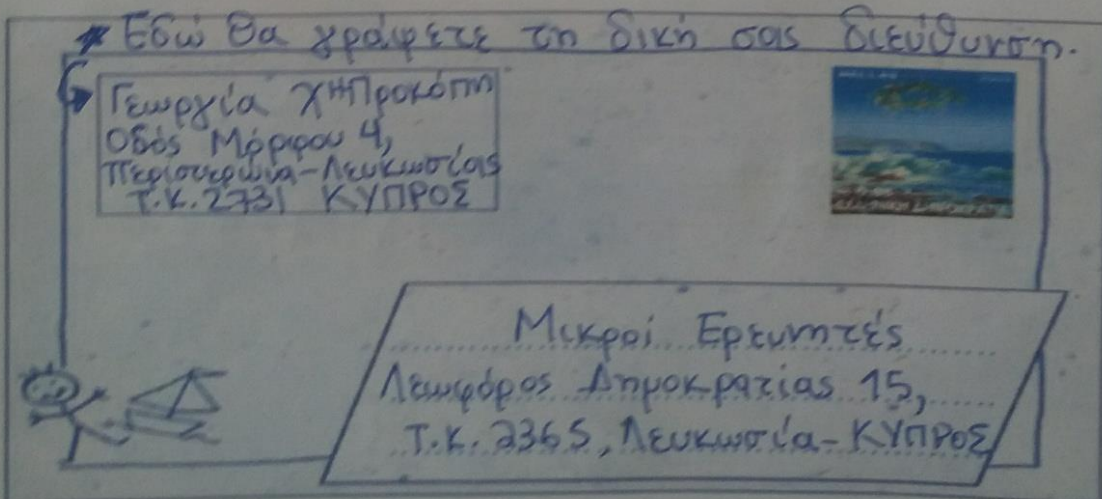 * Εδώ θα γράφετε τη δική σας διεύθυνση.
Γεωργία Χ"Προκόπη
Οδός Μόρφου 4,
Περιστερώνα-Λευκωσίας
Τ.Κ.2731 ΚΥΠΡΟΣ
Μικροί Ερευνητές
Λεωφόρος Δημοκρατίας 15,
Τ.Κ. 2365, Λευκωσία-ΚΥΠΡΟΣ